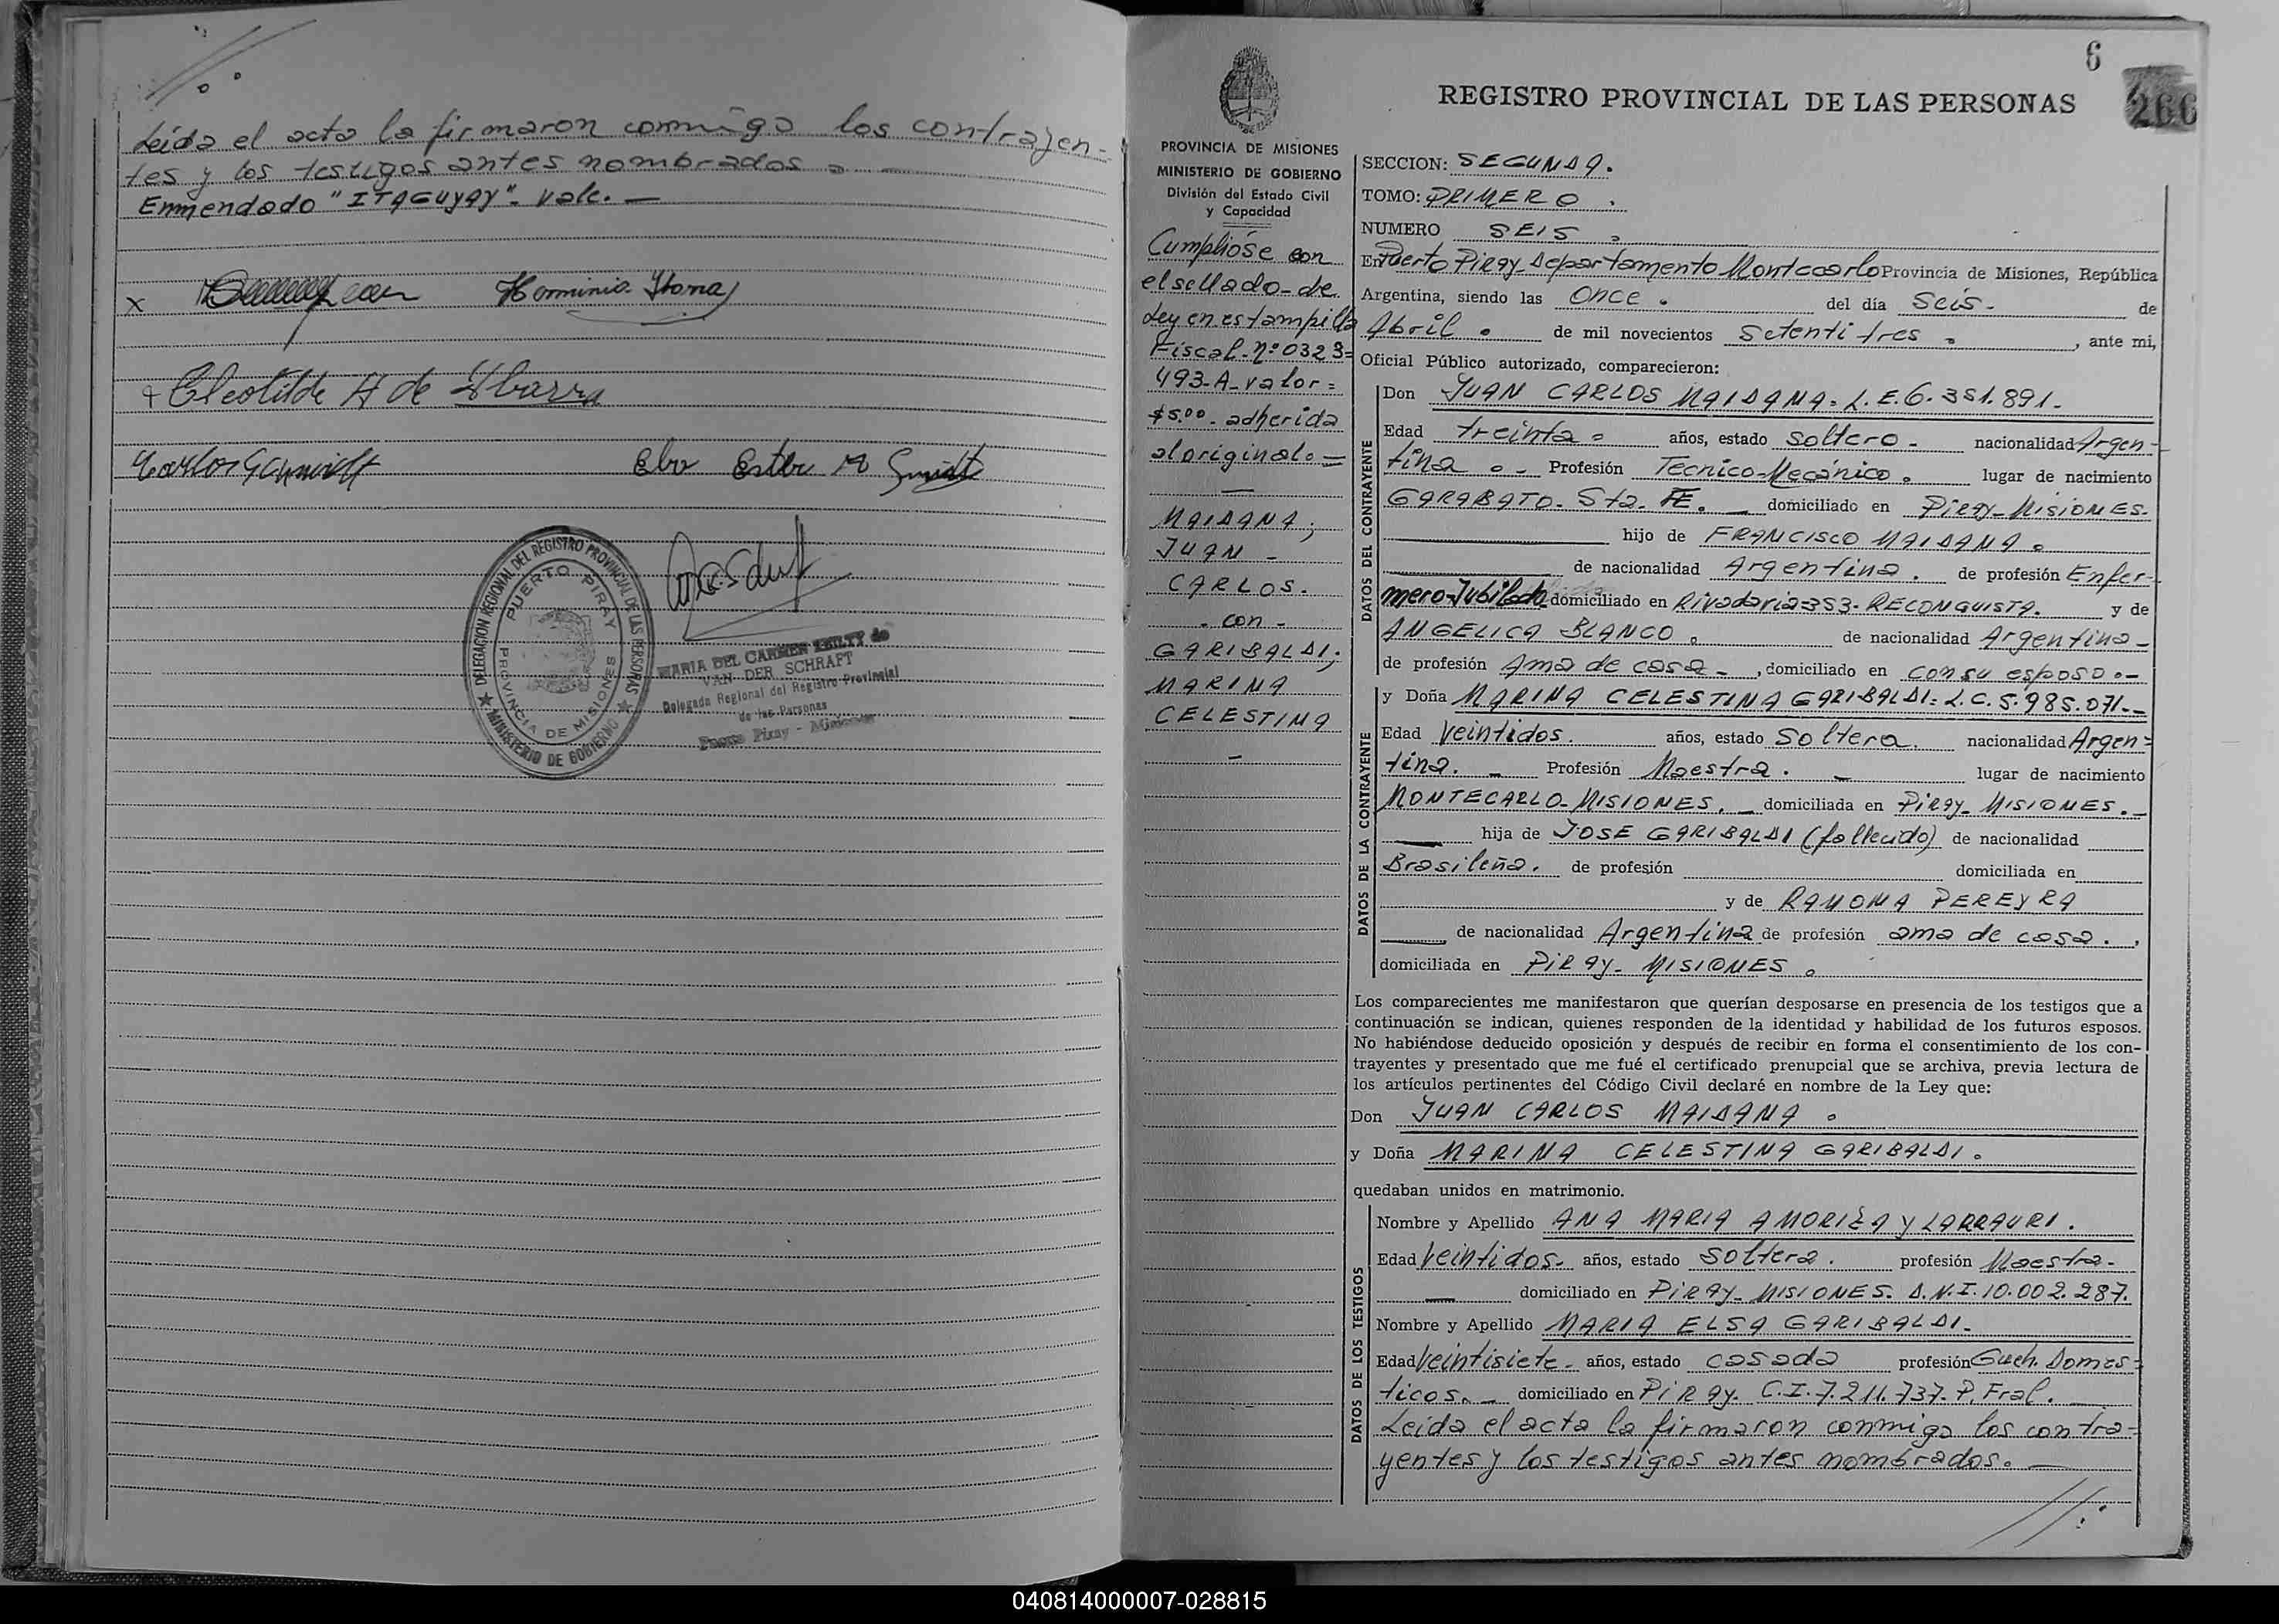 Leída el acta la firmaron conmigo los contrayen-
tes y los testigos antes nombrados.
Enmendado "ITAGUYAY". Vale.—
x Herminia
+ Cleotilde A de Ybarra
Carlos Schmidt Elva Ester M
DELEGACION REGIONAL DEL REGISTRO PROVINCIAL DE LAS PERSONAS
MINISTERIO DE GOBIERNO
PUERTO PIRAY
PROVINCIA DE MISIONES
MARIA DEL CARMEN de
VAN DER SCHRAFT
Delegada Regional del Registro Provincial
de las Personas
Piray - Misiones
6
266
REGISTRO PROVINCIAL DE LAS PERSONAS
PROVINCIA DE MISIONES
MINISTERIO DE GOBIERNO
División del Estado Civil
y Capacidad
Cumplióse con
el sellado-de
Ley en estampilla
Fiscal-Nº 0323-
493-A-valor=
$5.00. adherida
al original.=
MAIDANA;
JUAN -
CARLOS.
- con -
GARIBALDI;
MARINA
CELESTINA
SECCION: SEGUNDA.
TOMO: PRIMERO.
NUMERO SEIS.
En Puerto Piray-Departamento Montecarlo Provincia de Misiones, República
Argentina, siendo las Once. del día Seis- de
Abril. de mil novecientos Setentitres. , ante mi,
Oficial Público autorizado, comparecieron:
DATOS DEL CONTRAYENTE
Don JUAN CARLOS MAIDANA. L.E. 6.351.891.-
Edad treinta. años, estado Soltero- nacionalidad Argen-
tina.- Profesión Tecnico-Mecánico. lugar de nacimiento
GARABATO. Sta. FE. domiciliado en PIRAY-MISIONES.
hijo de FRANCISCO MAIDANA.
de nacionalidad Argentina. de profesión Enfer-
mero-Jubilado domiciliado en Rivadavia-353-RECONQUISTA. y de
ANGELICA BLANCO. de nacionalidad Argentina-
de profesión Ama de casa- , domiciliado en con su esposo.-
DATOS DE LA CONTRAYENTE
y Doña MARINA CELESTINA GARIBALDI. L.C. 5.985.071.-
Edad Veintidos. años, estado Soltera. nacionalidad Argen=
tina. - Profesión Maestra. - lugar de nacimiento
MONTECARLO-MISIONES. domiciliada en PIRAY-MISIONES.-
hija de JOSE GARIBALDI (fallecido) de nacionalidad
Brasileña. de profesión domiciliada en
y de RAMONA PEREYRA
de nacionalidad Argentina de profesión ama de casa. ,
domiciliada en PIRAY-MISIONES.
Los comparecientes me manifestaron que querían desposarse en presencia de los testigos que a
continuación se indican, quienes responden de la identidad y habilidad de los futuros esposos.
No habiéndose deducido oposición y después de recibir en forma el consentimiento de los con-
trayentes y presentado que me fué el certificado prenupcial que se archiva, previa lectura de
los artículos pertinentes del Código Civil declaré en nombre de la Ley que:
Don JUAN CARLOS MAIDANA.
y Doña MARINA CELESTINA GARIBALDI.
quedaban unidos en matrimonio.
DATOS DE LOS TESTIGOS
Nombre y Apellido ANA MARIA Y LARRAURI.
Edad Veintidos- años, estado Soltera. profesión Maestra-
domiciliado en PIRAY-MISIONES. D.N.I. 10.002.287.
Nombre y Apellido MARIA ELSA GARIBALDI-
Edad Veintisiete- años, estado casada profesión Queh. Domes=
ticos.- domiciliado en PIRAY. C.I. 7.211.737. P. Fral.
Leída el acta la firmaron conmigo los contra-
yentes y los testigos antes nombrados.-
040814000007-028815